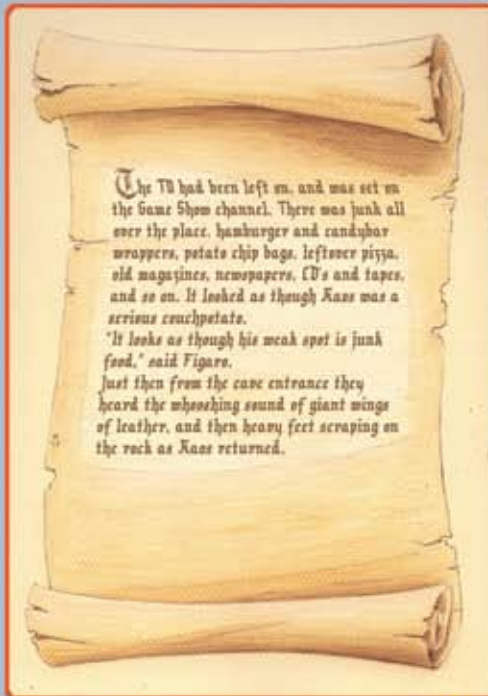 The TV had been left on, and was set on
the Game Show channel. There was junk all
over the place, hamburger and candybar
wrappers, potato chip bags, leftover pizza,
old magazines, newspapers, CD's and tapes,
and so on. It looked as though Kaos was a
serious couchpotato.
"It looks as though his weak spot is junk
food," said Figaro.
Just then from the cave entrance they
heard the whooshing sound of giant wings
of leather, and then heavy feet scraping on
the rock as Kaos returned.